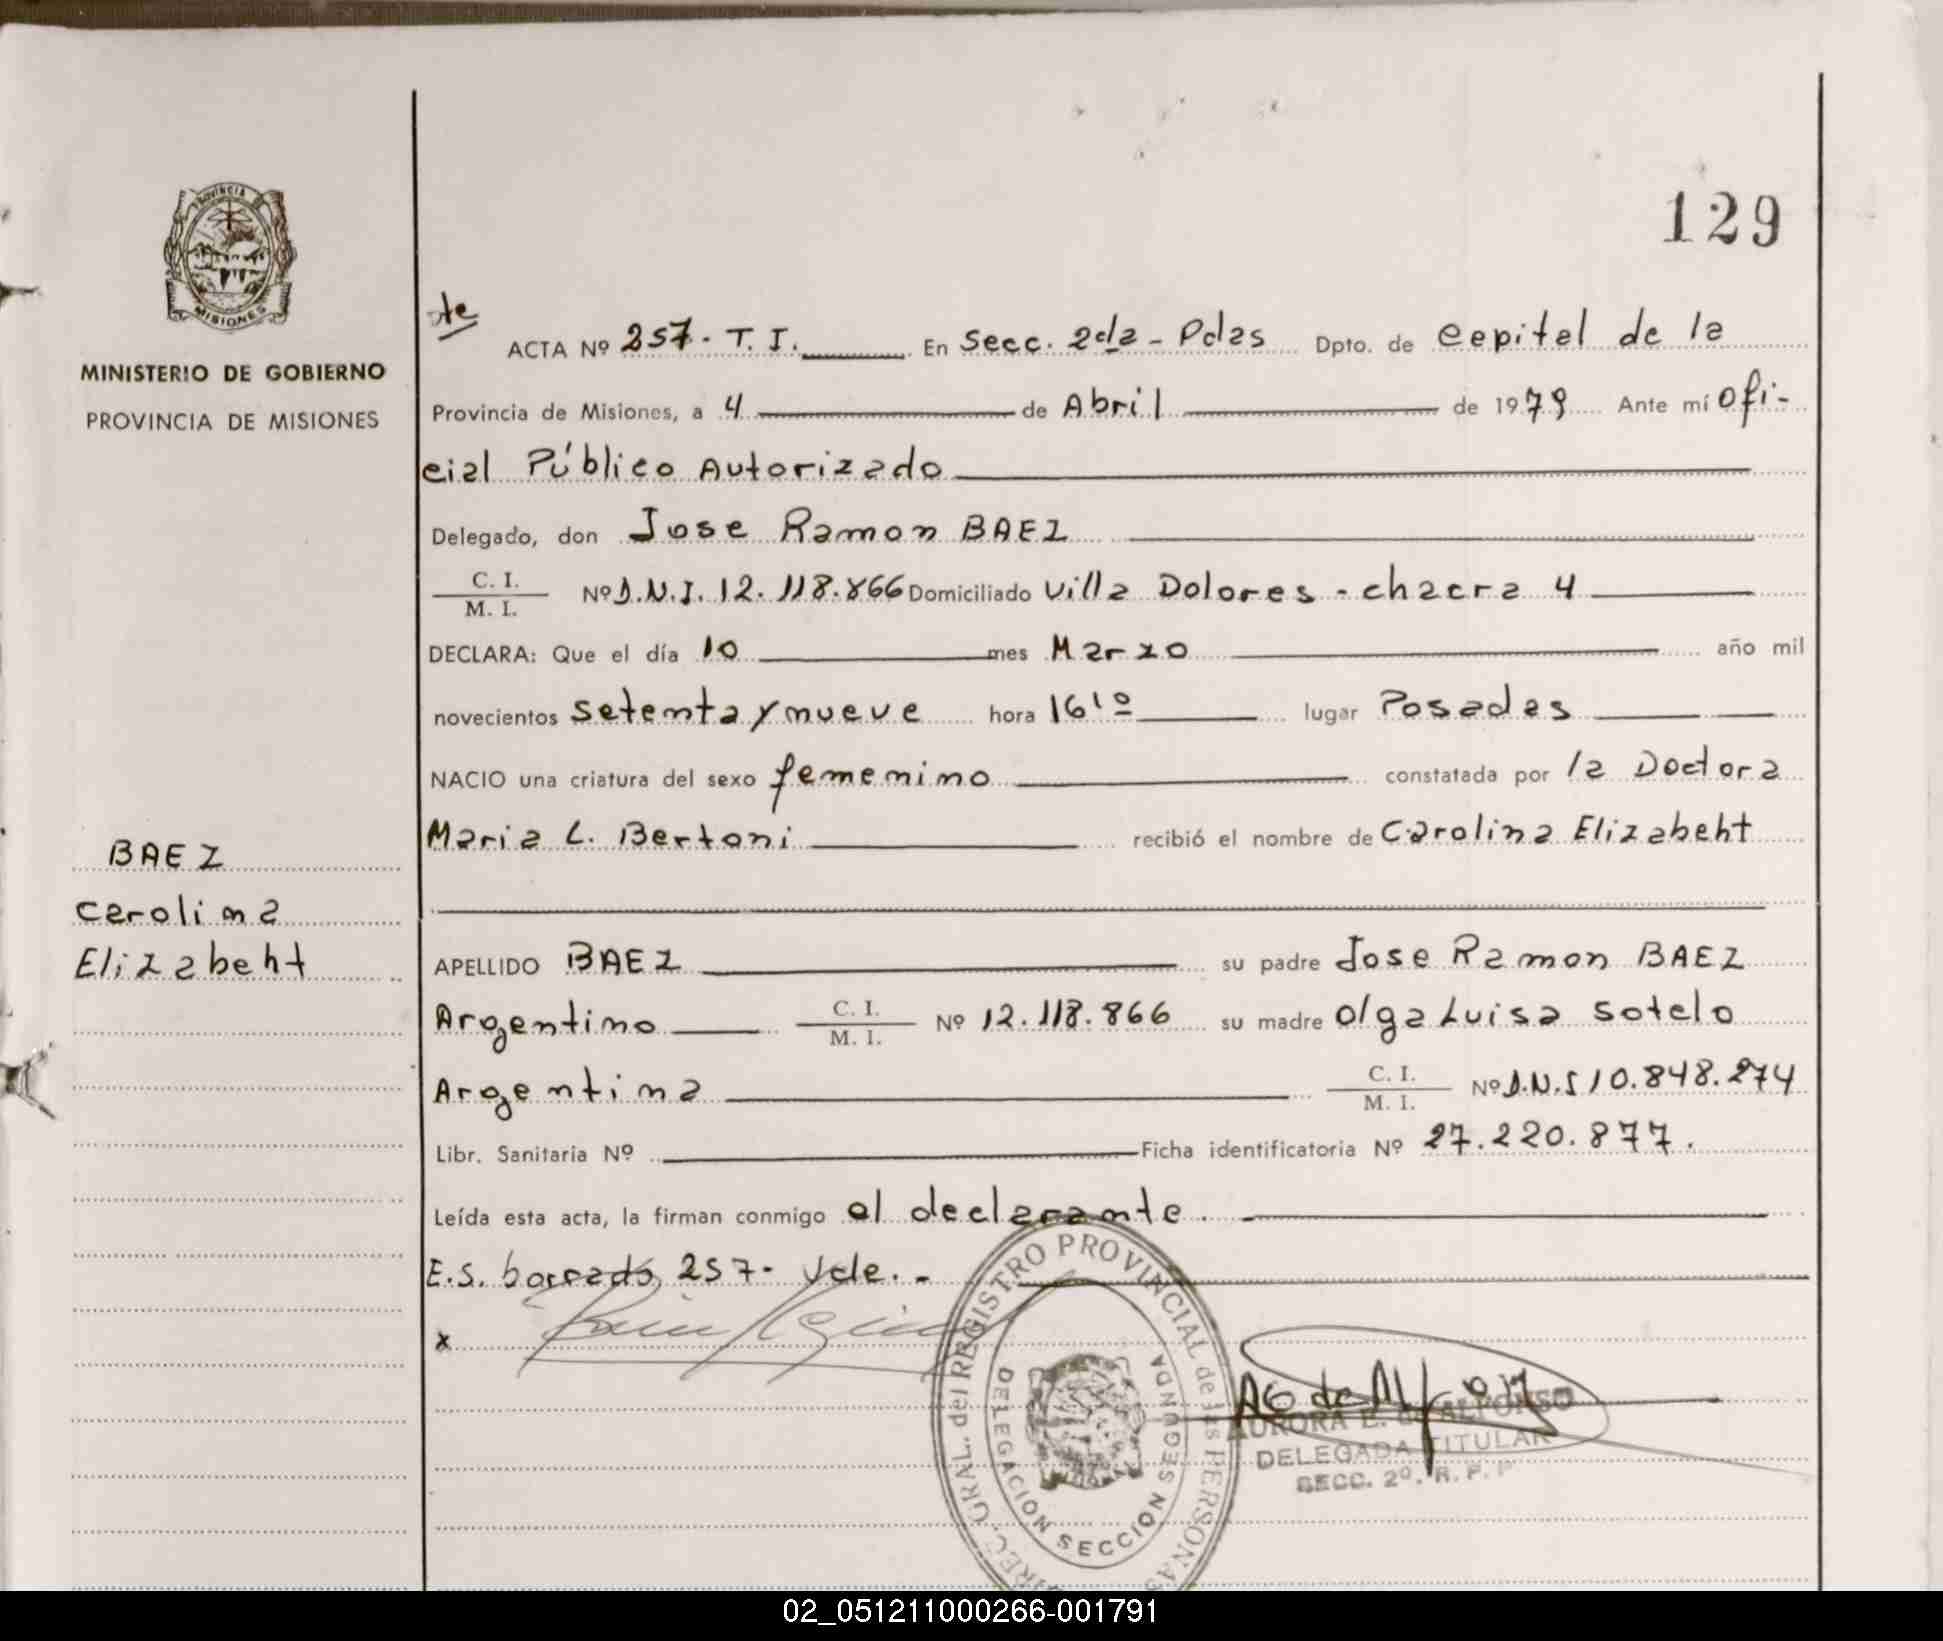 129
PROVINCIA
MISIONES
MINISTERIO DE GOBIERNO
PROVINCIA DE MISIONES
ACTA Nº 257. T. I. En Secc. 2da - Pdas Dpto. de Capital de la
Provincia de Misiones, a 4 de Abril de 1979 Ante mí Ofi-
cial Público Autorizado
Delegado, don Jose Ramon BAEZ
C. I.
M. I. Nº D.N.I. 12.118.866 Domiciliado Villa Dolores - chacra 4
DECLARA: Que el día 10 mes Marzo año mil
novecientos setenta y nueve hora 16'º lugar Posadas
NACIO una criatura del sexo femenino constatada por la Doctora
Maria L. Bertoni recibió el nombre de Carolina Elizabeht
BAEZ
Carolina
Elizabeht
APELLIDO BAEZ su padre Jose Ramon BAEZ
Argentino C. I.
M. I. Nº 12.118.866 su madre Olga Luisa Sotelo
Argentina C. I.
M. I. Nº D.N.I 10.848.274
Libr. Sanitaria Nº Ficha identificatoria Nº 27.220.877.
Leída esta acta, la firman conmigo el declarante.
E.S. borrado 257- Vale. -
x
DIREC. GRAL. del REGISTRO PROVINCIAL de las PERSONAS
DELEGACION SECCION SEGUNDA
AG de Alfonso
AURORA E. de ALFONSO
DELEGADA TITULAR
SECC. 2º. R. P. P
02_051211000266-001791